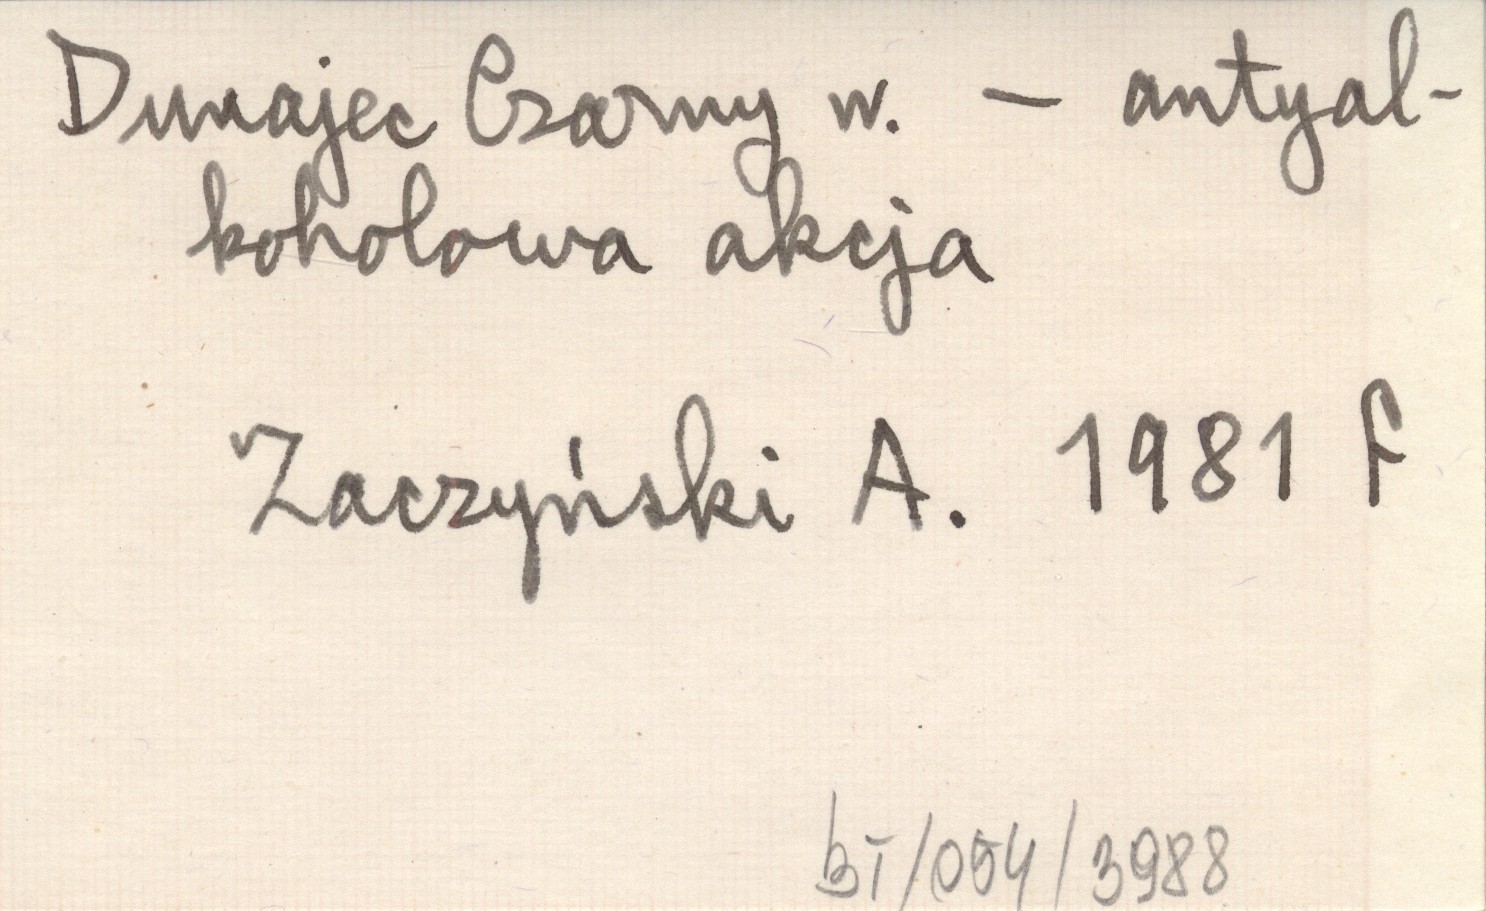 Dunajec Czarny w. — antyal-
koholowa akcja
Zaczyński A. 1981 f
BI/054/3988